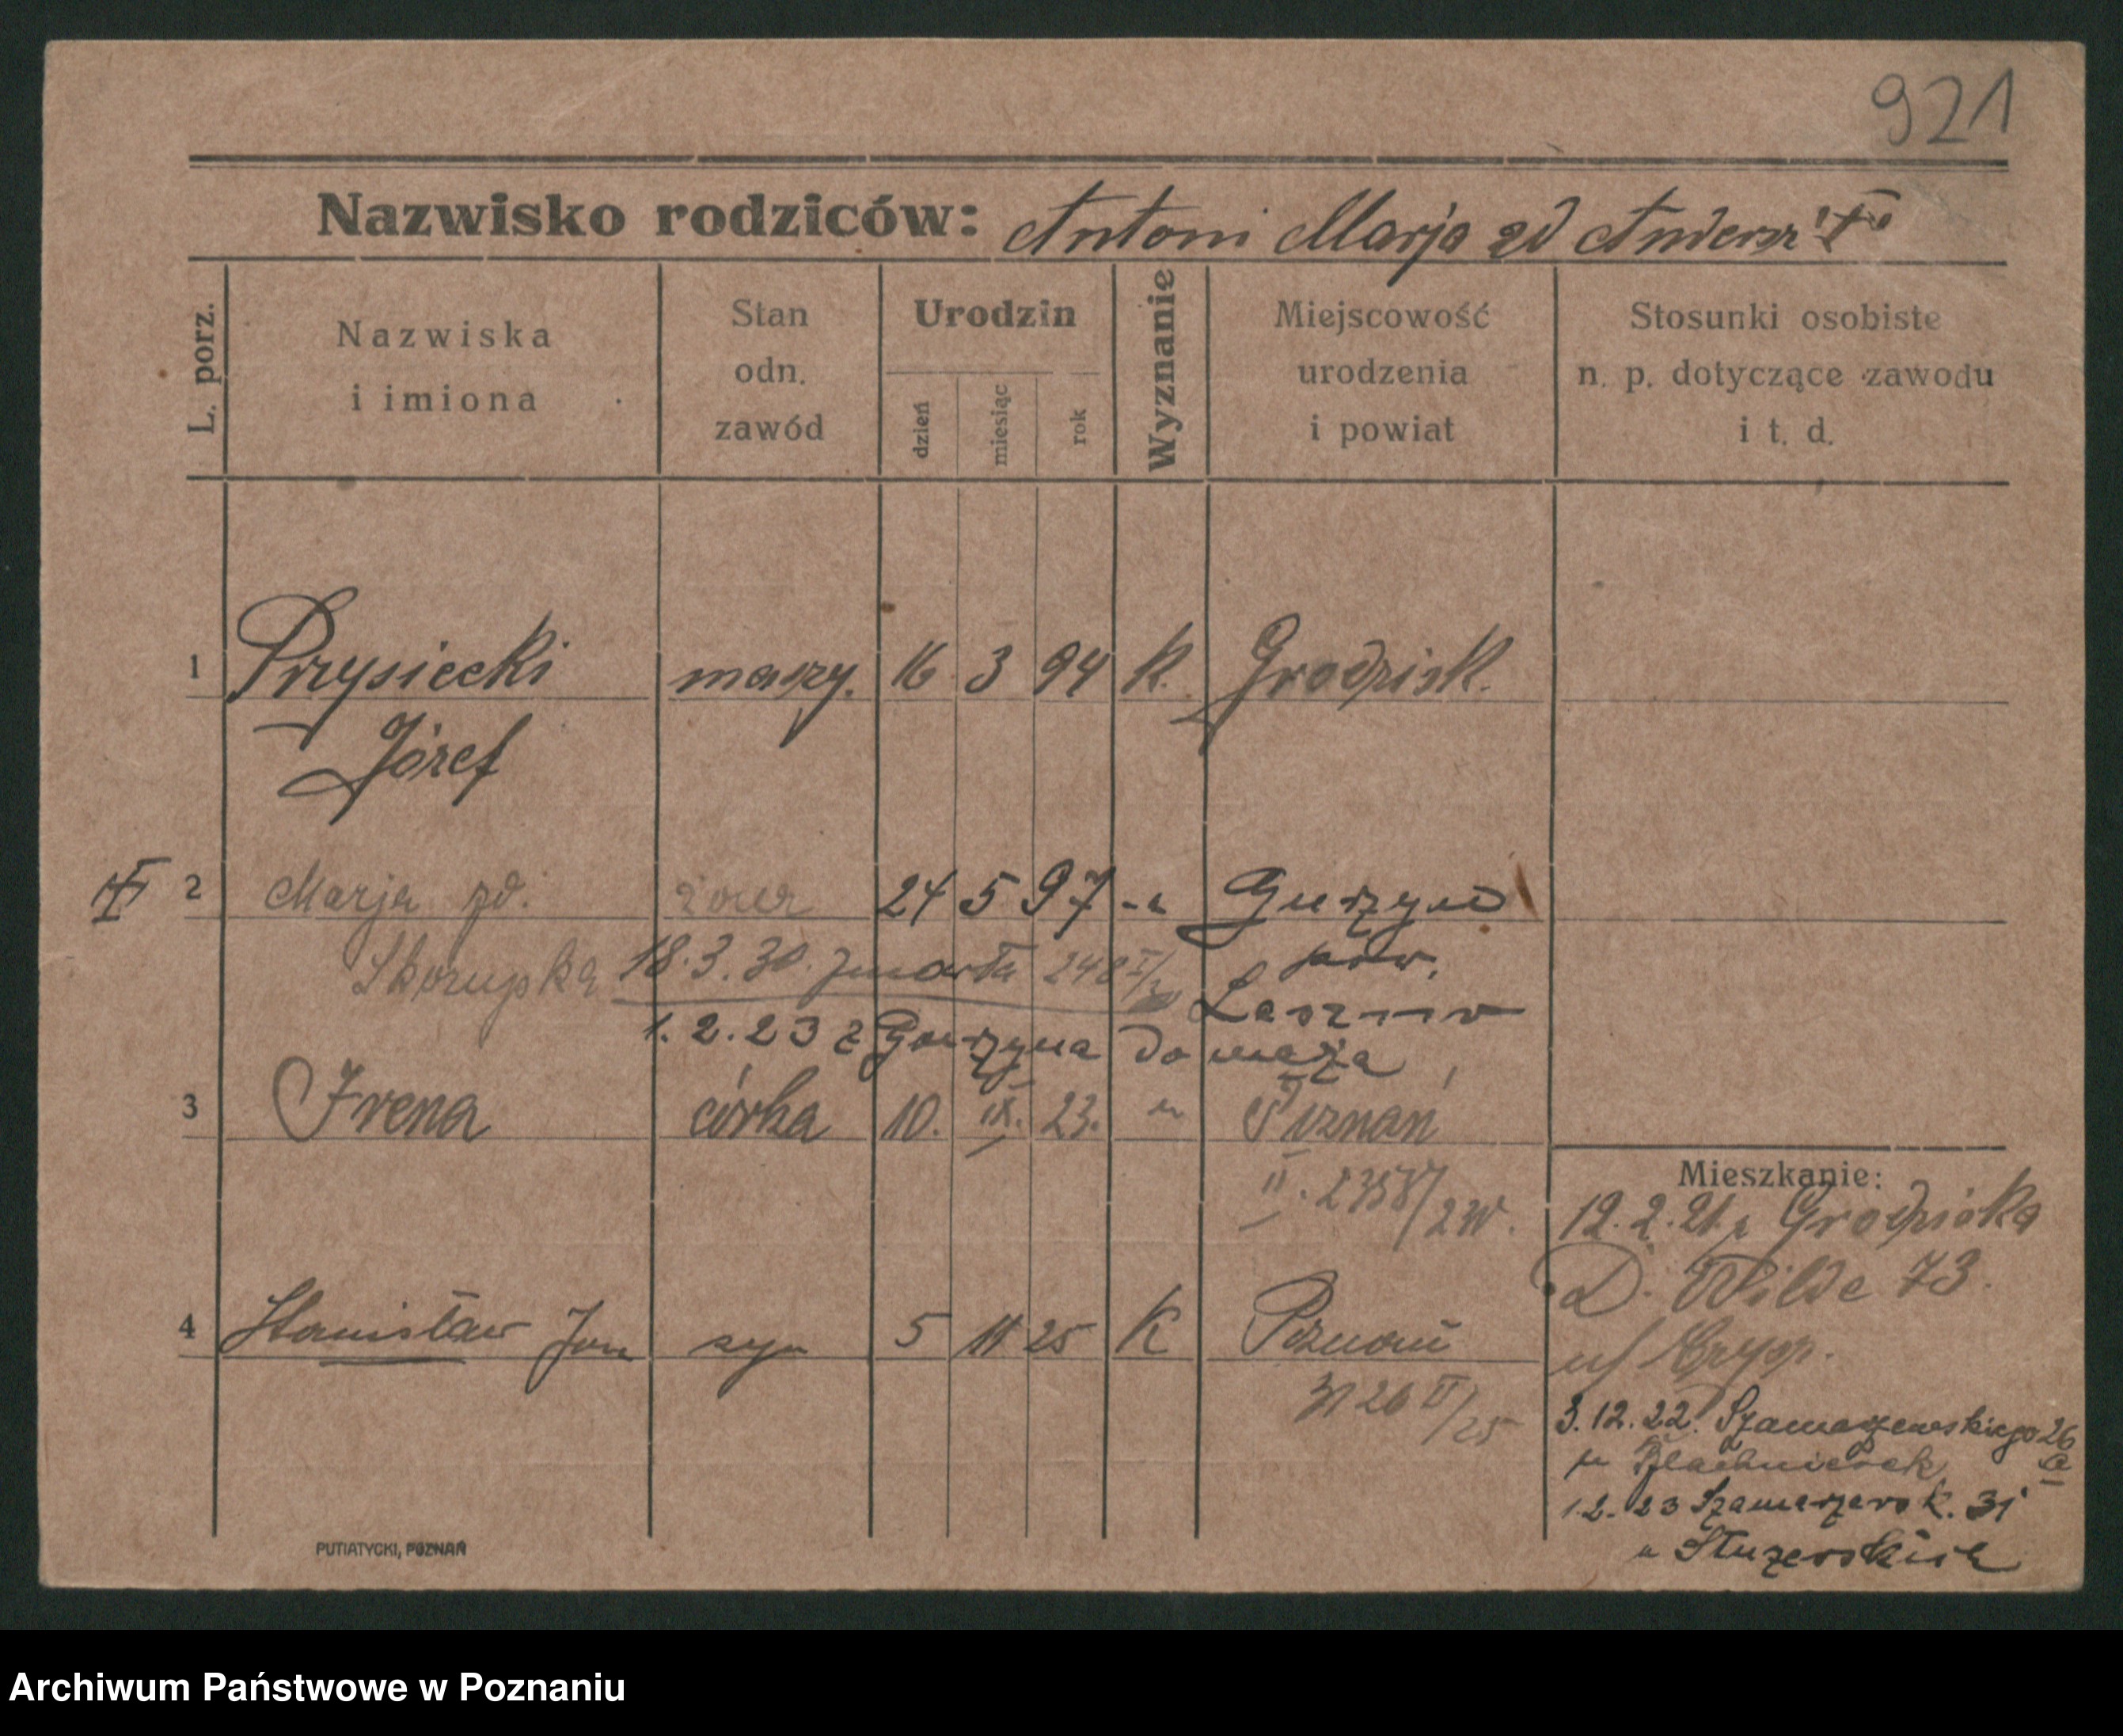 921
Nazwisko rodziców: Antoni Marja zd Andersz
L. porz.
Nazwiska
i imiona
Stan
odn.
zawód
Urodzin
dzień
miesiąc
rok
Wyznanie
Miejscowość
urodzenia
i powiat
Stosunki osobiste
n. p. dotyczące zawodu
i t. d.
1 Przysiecki maszy. 16 3 94 K. Grodzisk.
Józef
2 Marja zd. żona 24 5 97 Gurzyno
Skorupska 18.3.30. zmarła pow.
Leszno
1.2.23 z Gurzyna do męża
3 Irena córka 10. IX. 23. Poznań
II.
Mieszkanie:
12.2.21. z Grodziska
D. Wilda 73.
4 Stanisław Jan syn 5 11 25 K Poznań
25
3.12.22. Szamarzewskiego 26
1.2.23 Szamarzewsk. 31
PUTIATYCKI, POZNAŃ
Archiwum Państwowe w Poznaniu